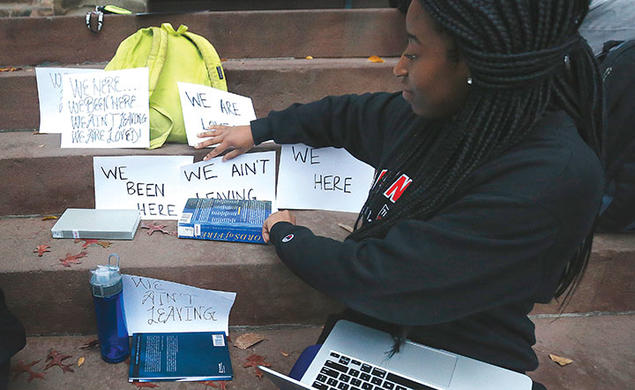 WE HERE...
WE BEEN HERE
WE AIN'T LEAVING
WE ARE LOVED!
WE ARE
WE
BEEN
HERE
WE AIN'T
LEAVING
WE
HERE
WORDS of FIRE
WE
AIN'T LEAVING